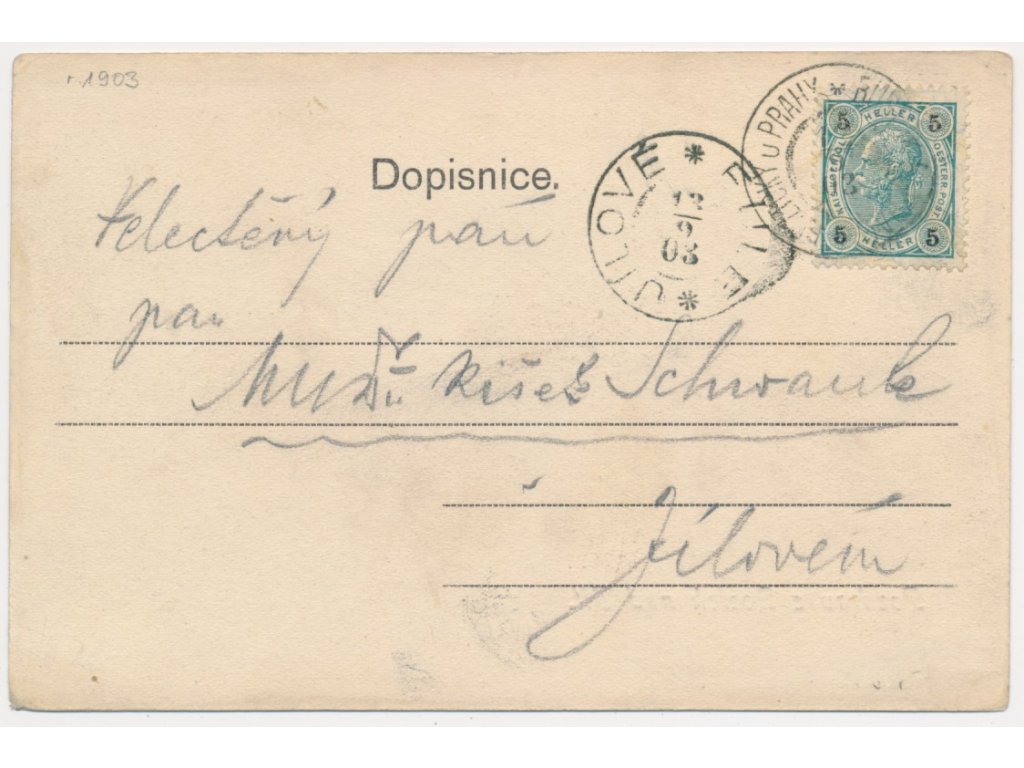 r. 1903
Dopisnice.
Velectěný pán
pan
MUDr. Schwank
Jílovém
JÍLOVÉ * EULE *
12
2
03
U PRAHY *
5 HELLER 5
KAIS. KÖNIGL. OESTERR. POST.
5 HELLER 5